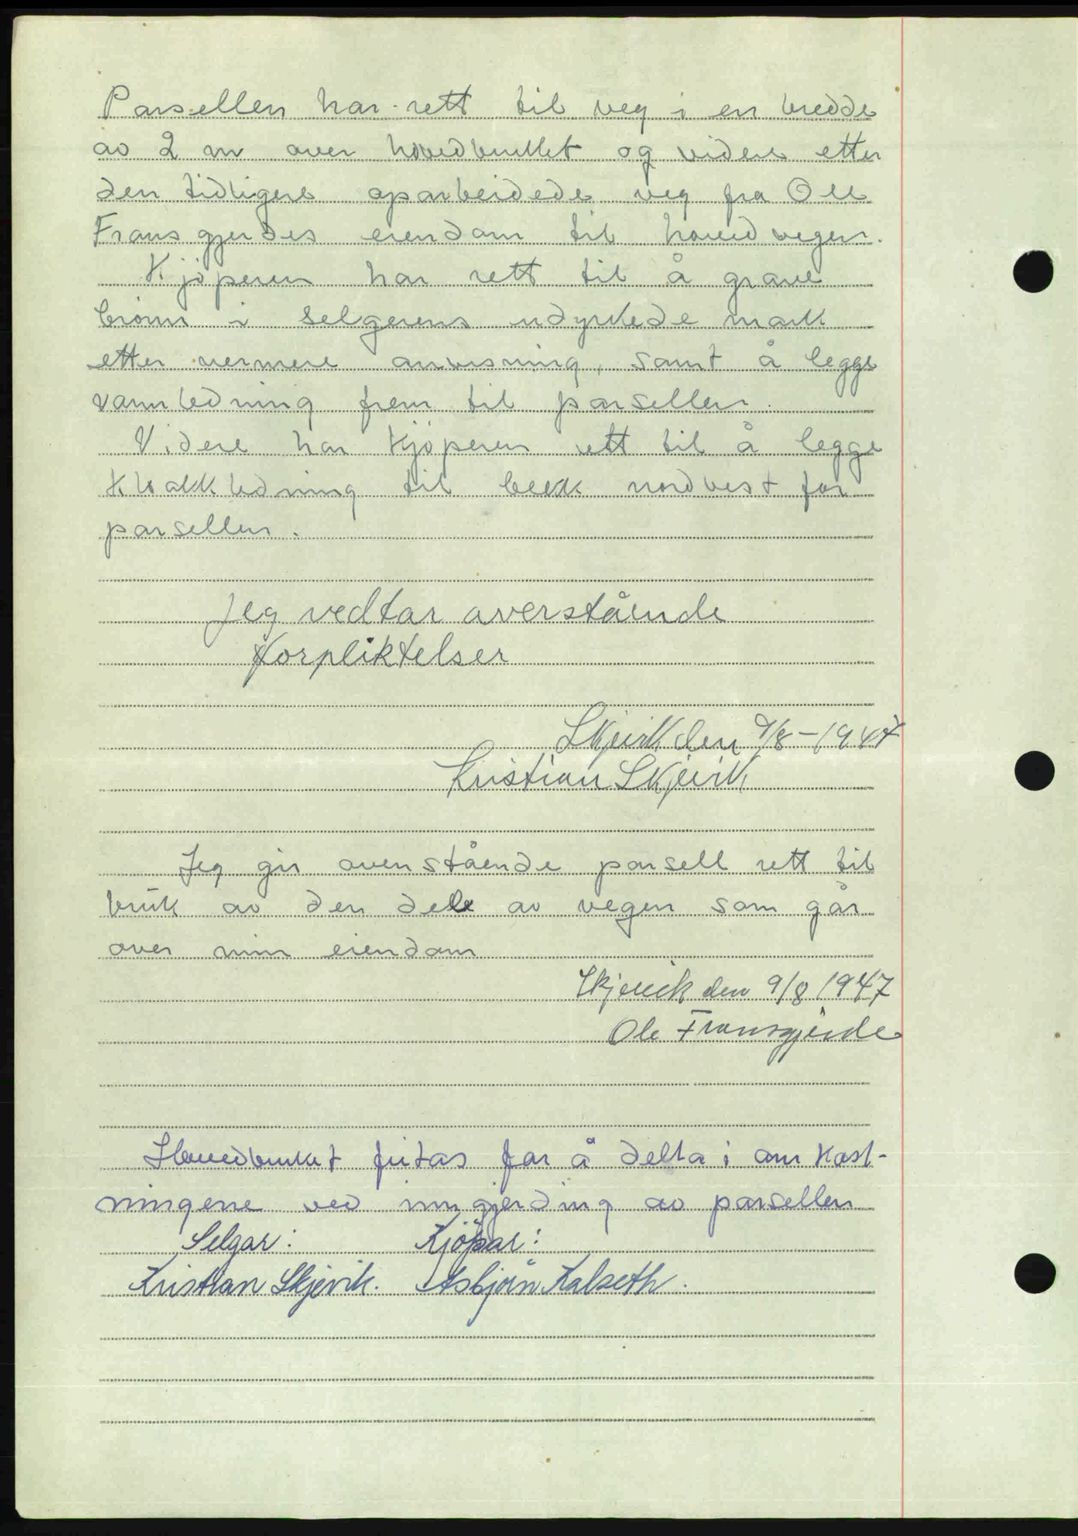 Parsellen har rett til veg i en bredde
av 2 m over hovedbruket og videre etter
den tidligere oparbeidede veg fra Ole
Frans gjerdes eiendom til hovedvegen.
Kjöperen har rett til å grave
brönn i selgerens udyrkede mark
etter nermere anvisning, samt å legge
vannledning frem til parsellen.
Videre har kjöperen rett til å legge
kloakkledning til bekk nordvest for
parsellen.
Jeg vedtar averstående
forpliktelser
Skjevik den 9/8-1947
Kristian Skjevik
Jeg gir ovenstående parsell rett til
bruk av den dele av vegen som går
over min eiendom
Skjevik den 9/8 1947
Ole Fransgjerde
Hovedbruket fritas for å delta i omkost-
ningene ved inngjerding av parsellen
Selgar: Kjöpar:
Kristian Skjevik. Asbjörn Kalseth.